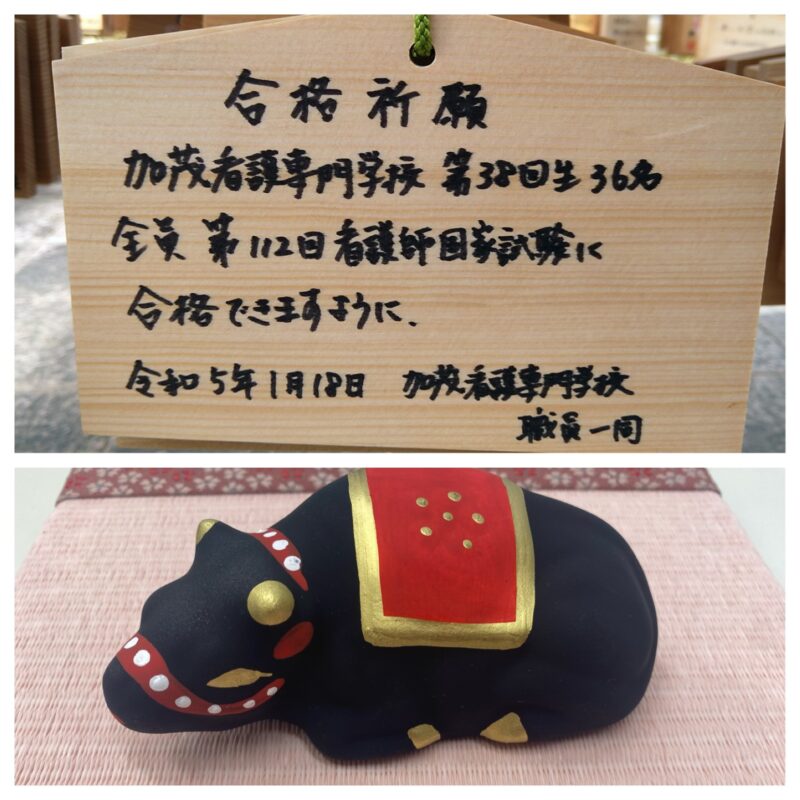 合格祈願
加茂看護専門学校 第38回生 36名
全員 第112回看護師国家試験に
合格できますように、
令和5年1月18日 加茂看護専門学校
職員一同